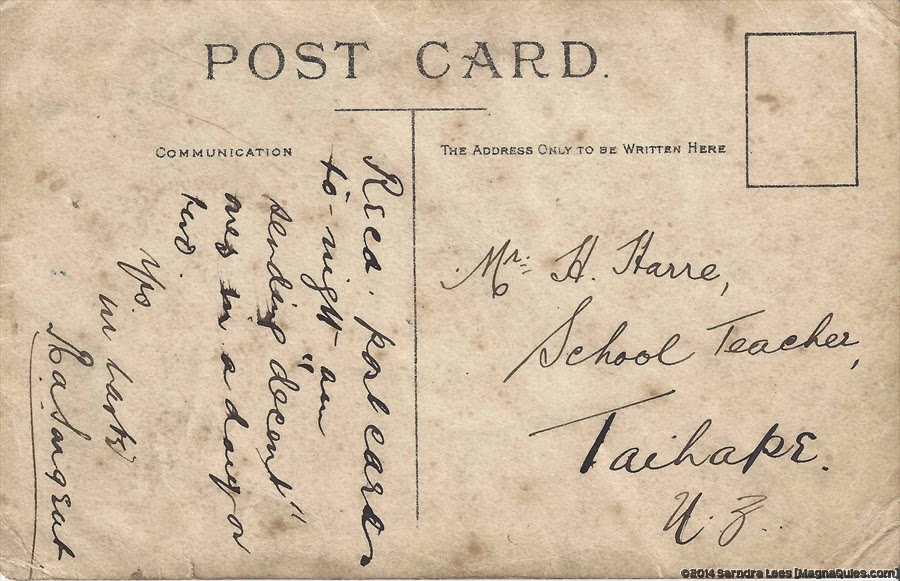 POST CARD.
COMMUNICATION
THE ADDRESS ONLY TO BE WRITTEN HERE
Recd. post cards
to-night am
sending "decent"
ones in a day or
two.
Yrs.
in haste
Mr. H. Harre,
School Teacher,
Taihape.
N.Z.
©2014 Sarndra Lees [MagnaQuies.com]